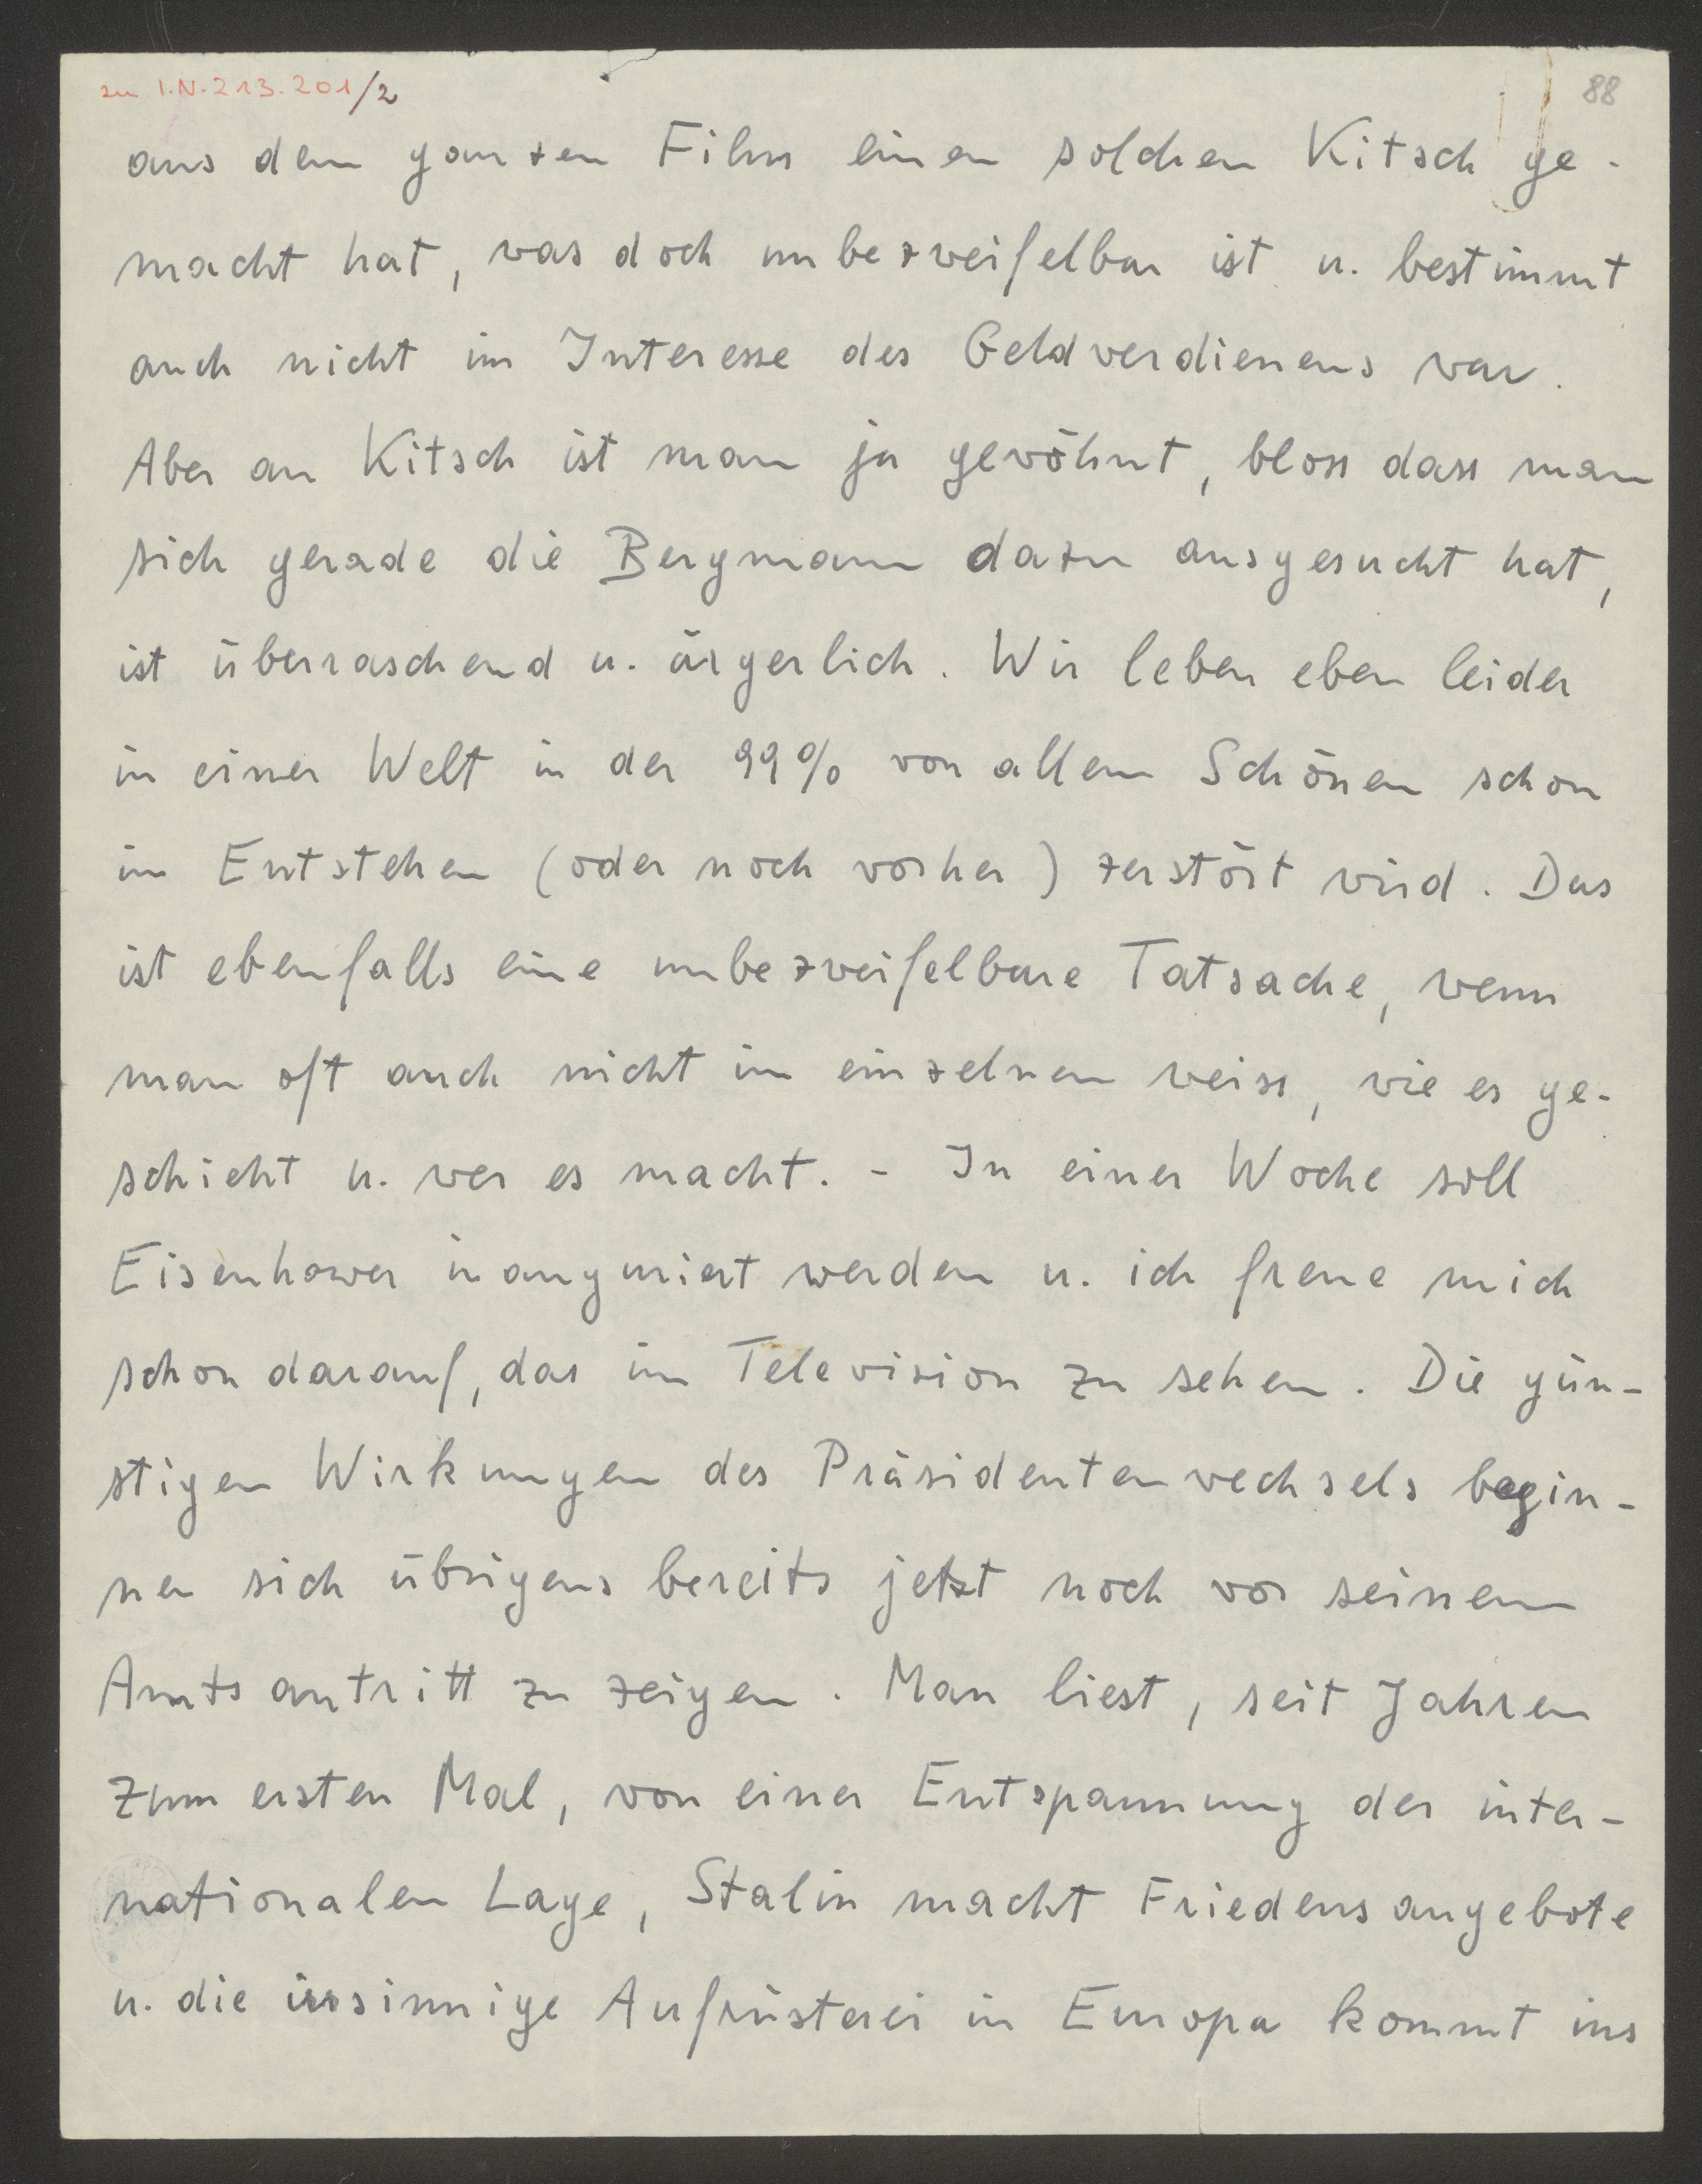 zu I.N. 213.201/2
88
aus dem ganzen Film einen solchen Kitsch ge-
macht hat, was doch unbezweifelbar ist u. bestimmt
auch nicht im Interesse des Geldverdienens war.
Aber an Kitsch ist man ja gewöhnt, bloss dass man
sich gerade die Bergmann dazu ausgesucht hat,
ist überraschend u. ärgerlich. Wir leben eben leider
in einer Welt in der 99% von allem Schönen schon
im Entstehen (oder noch vorher) zerstört wird. Das
ist ebenfalls eine unbezweifelbare Tatsache, wenn
man oft auch nicht im einzelnen weiss, wie es ge-
schieht u. wer es macht. - In einer Woche soll
Eisenhower inauguriert werden u. ich freue mich
schon darauf, das im Television zu sehen. Die gün-
stigen Wirkungen des Präsidentenwechsels begin-
nen sich übrigens bereits jetzt noch vor seinem
Amtsantritt zu zeigen. Man liest, seit Jahren
zum ersten Mal, von einer Entspannung der inter-
nationalen Lage, Stalin macht Friedensangebote
u. die irrsinnige Aufrüsterei in Europa kommt ins